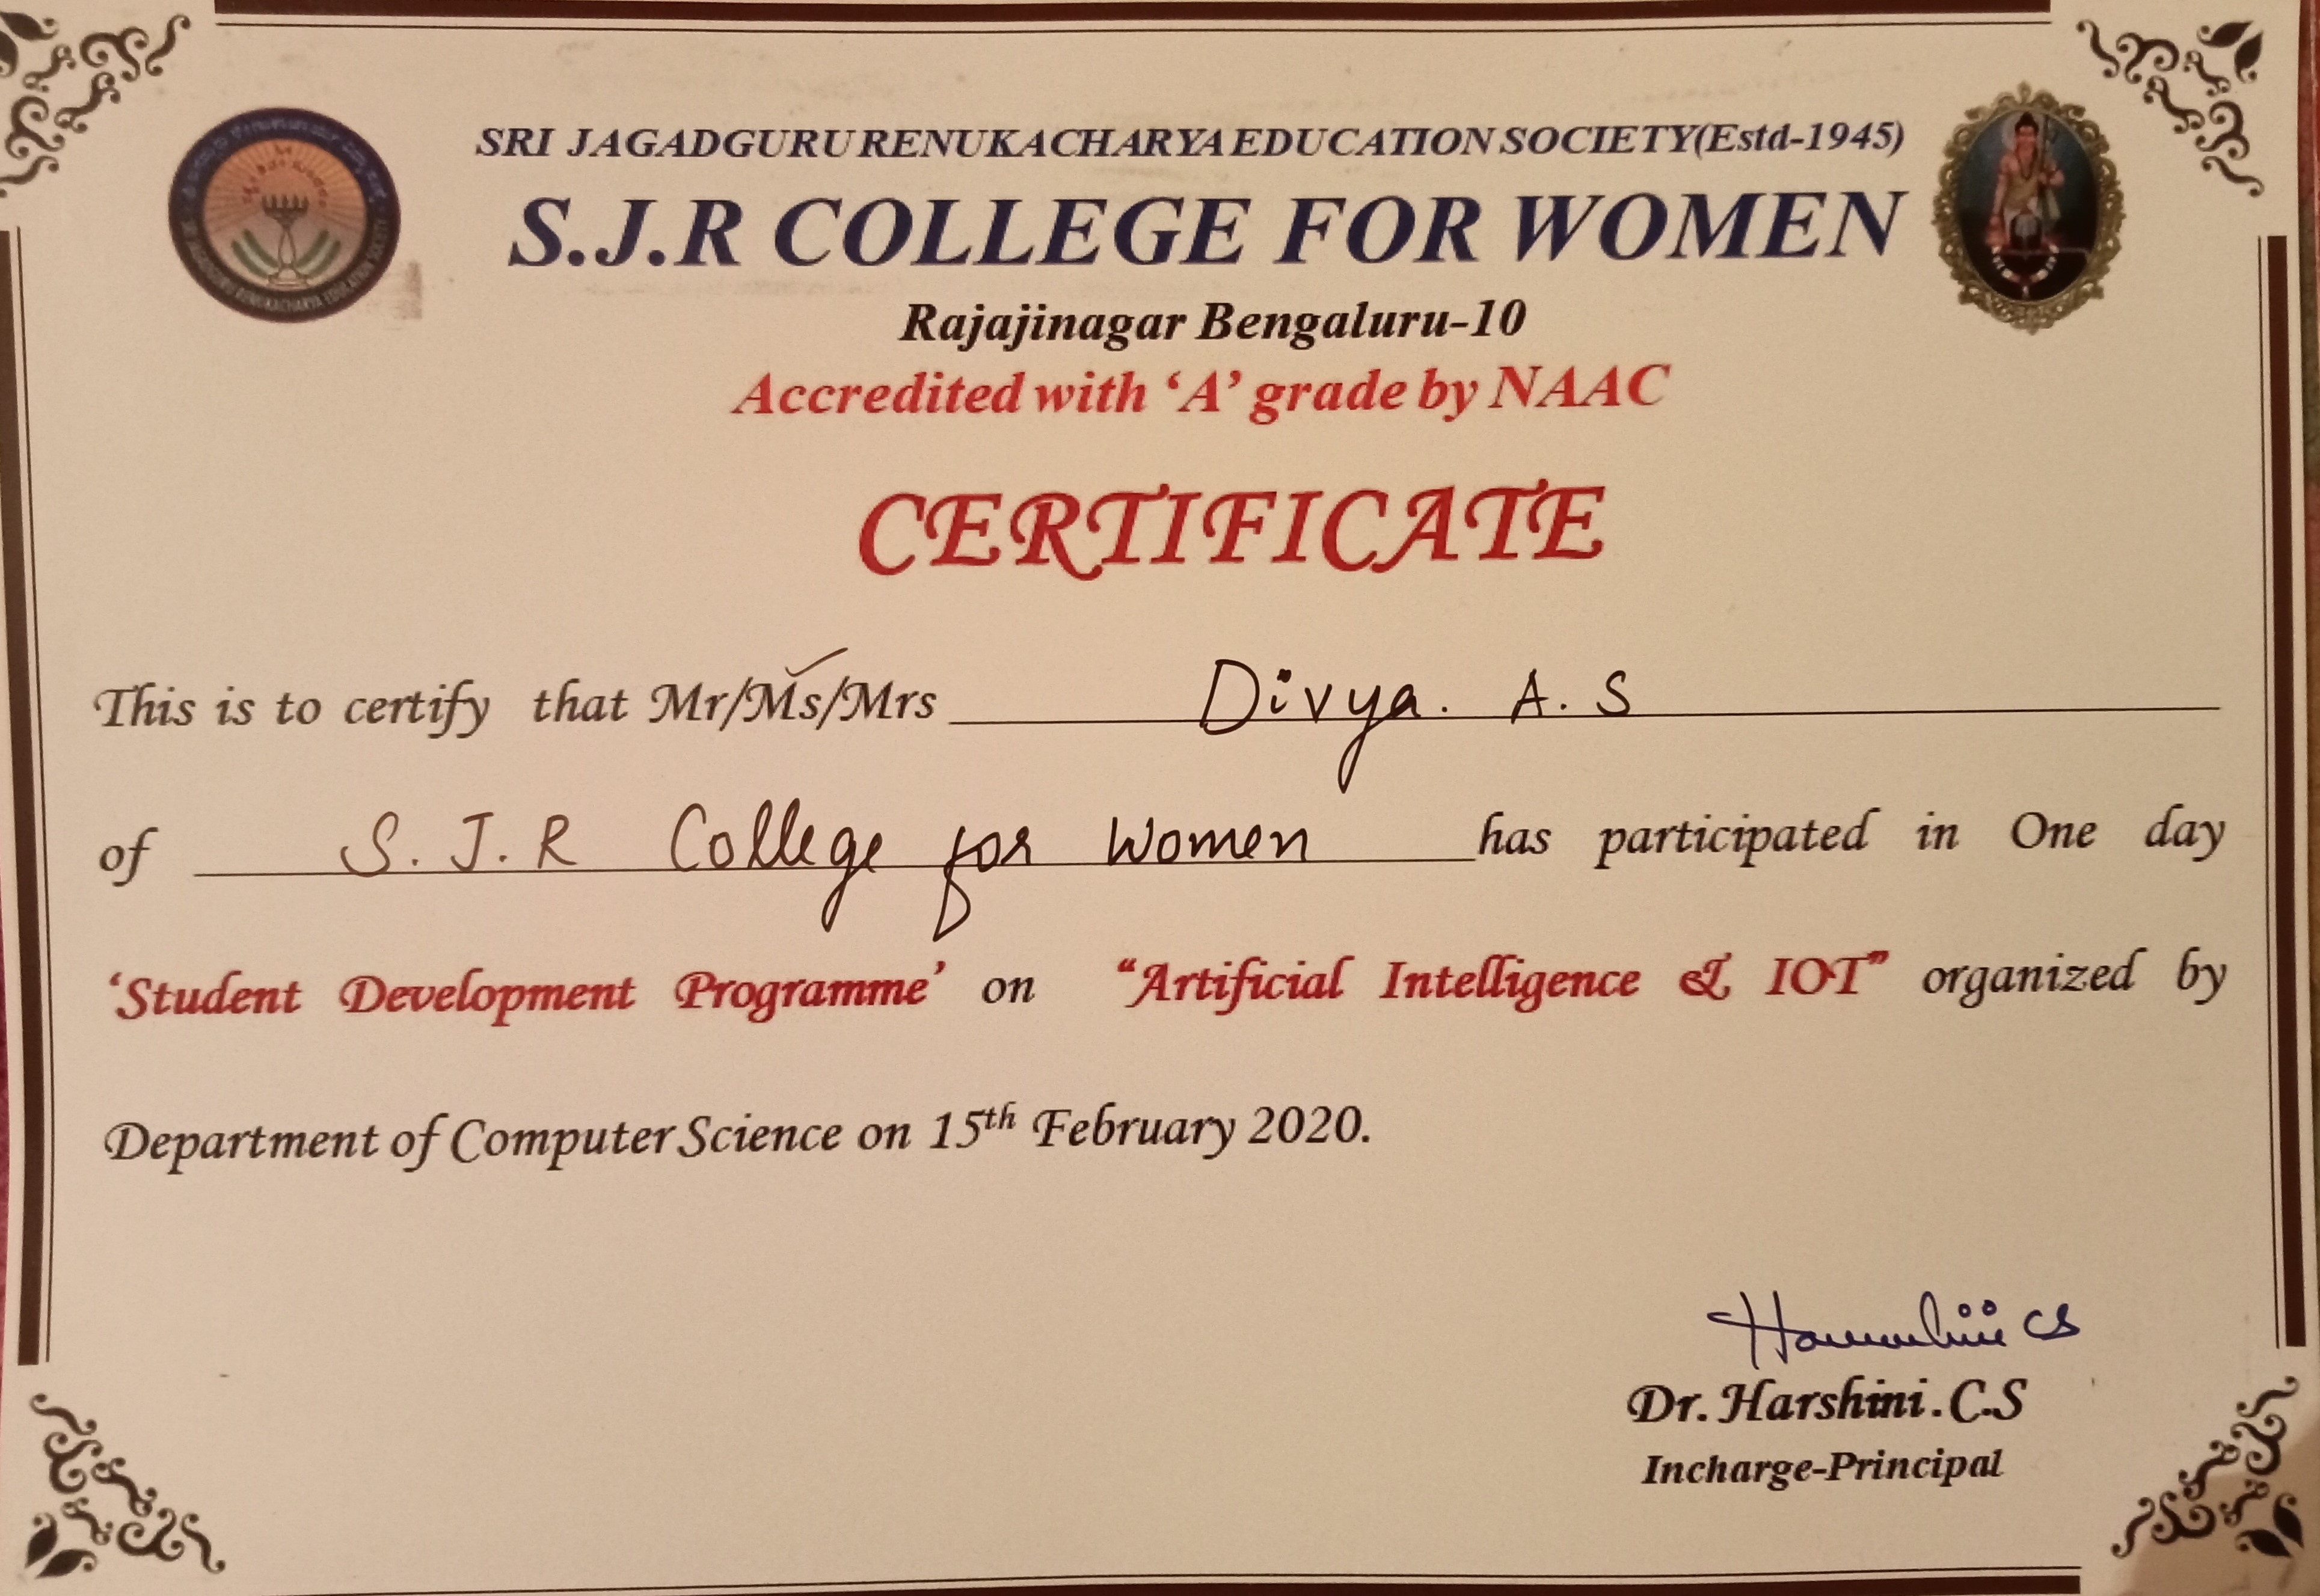 SRI JAGADGURU RENUKACHARYA EDUCATION SOCIETY(Estd-1945)
S.J.R COLLEGE FOR WOMEN
Rajajinagar Bengaluru-10
Accredited with ‘A’ grade by NAAC
CERTIFICATE
This is to certify that Mr/Ms/Mrs Divya. A. S
of S. J. R College for Women has participated in One day
‘Student Development Programme’ on “Artificial Intelligence & IOT” organized by
Department of Computer Science on 15th February 2020.
Dr. Harshini. C.S
Incharge-Principal